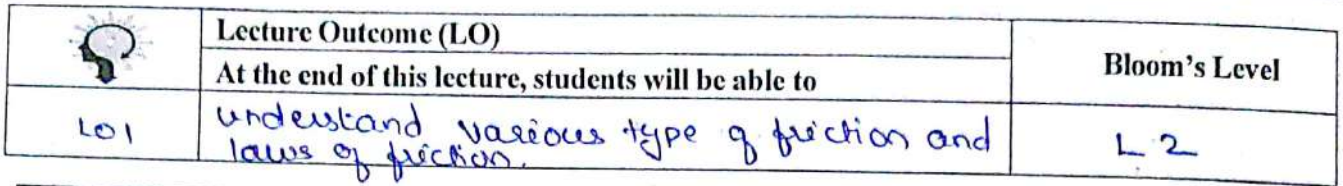 Lecture Outcome (LO)
Bloom's Level
At the end of this lecture, students will be able to
LO1
understand various type of friction and
laws of friction.
L2